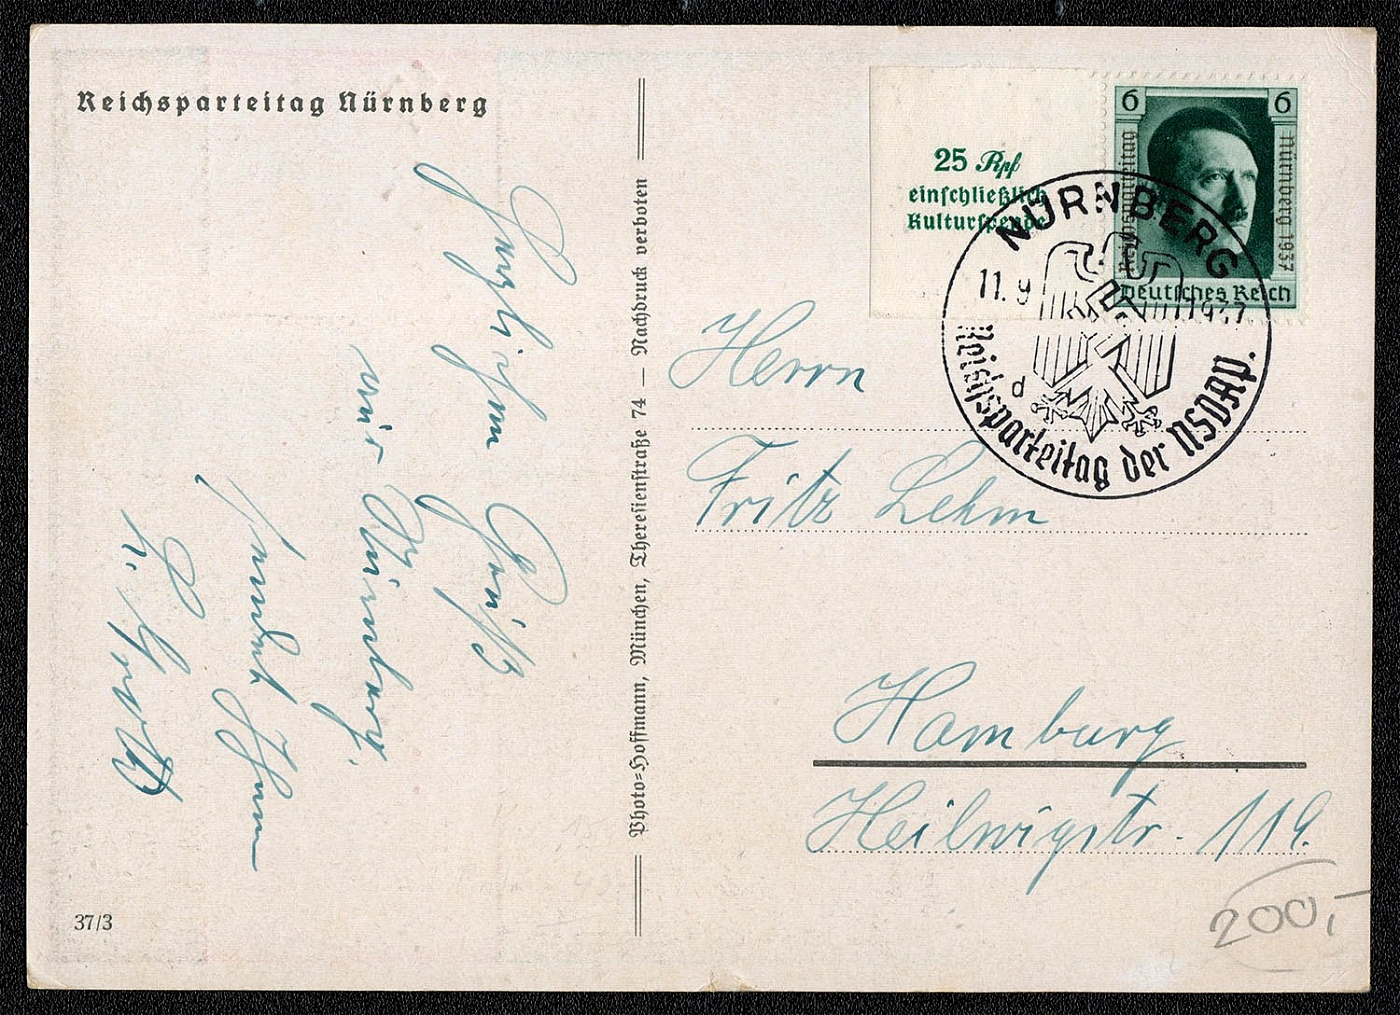 Reichsparteitag Nürnberg
Herzlichen Gruß
aus Nürnberg.
sendet Ihnen
37/3
Photo=Hoffmann, München, Theresienstraße 74 — Nachdruck verboten
25 Rpf
einschließlich
Kulturspende
6 6
Reichsparteitag
Nürnberg 1937
Deutsches Reich
NÜRNBERG
11.9 1937
d
Reichsparteitag der NSDAP.
Herrn
Fritz Lehm
Hamburg
Heilwigstr. 119.
200,-